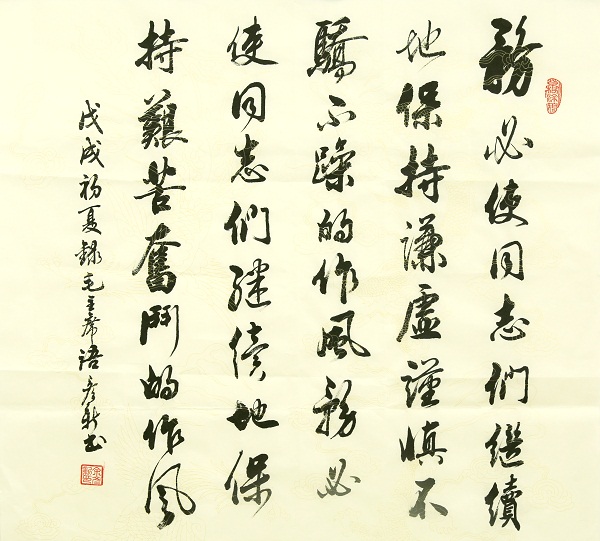 務必使同志們繼續
地保持謙虛謹慎不
驕不躁的作風務必
使同志們繼續地保
持艱苦奮鬥的作風
戊戌初夏錄毛主席語彥新書